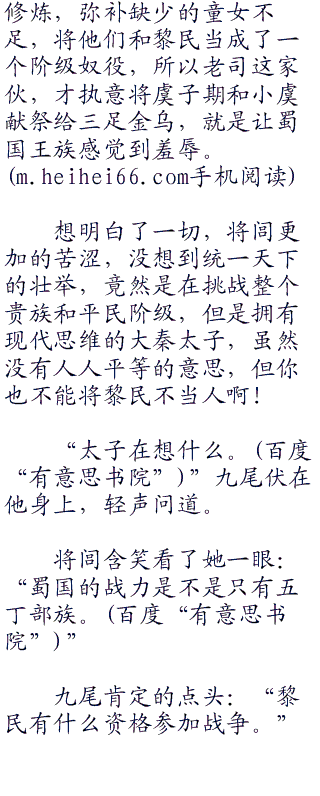 修炼，弥补缺少的童女不
足，将他们和黎民当成了一
个阶级奴役，所以老司这家
伙，才执意将虞子期和小虞
献祭给三足金乌，就是让蜀
国王族感觉到羞辱。
(m.heihei66.com手机阅读)
想明白了一切，将闾更
加的苦涩，没想到统一天下
的壮举，竟然是在挑战整个
贵族和平民阶级，但是拥有
现代思维的大秦太子，虽然
没有人人平等的意思，但你
也不能将黎民不当人啊！
“太子在想什么。(百度
“有意思书院”)”九尾伏在
他身上，轻声问道。
将闾含笑看了她一眼：
“蜀国的战力是不是只有五
丁部族。(百度“有意思书
院”)”
九尾肯定的点头：“黎
民有什么资格参加战争。”